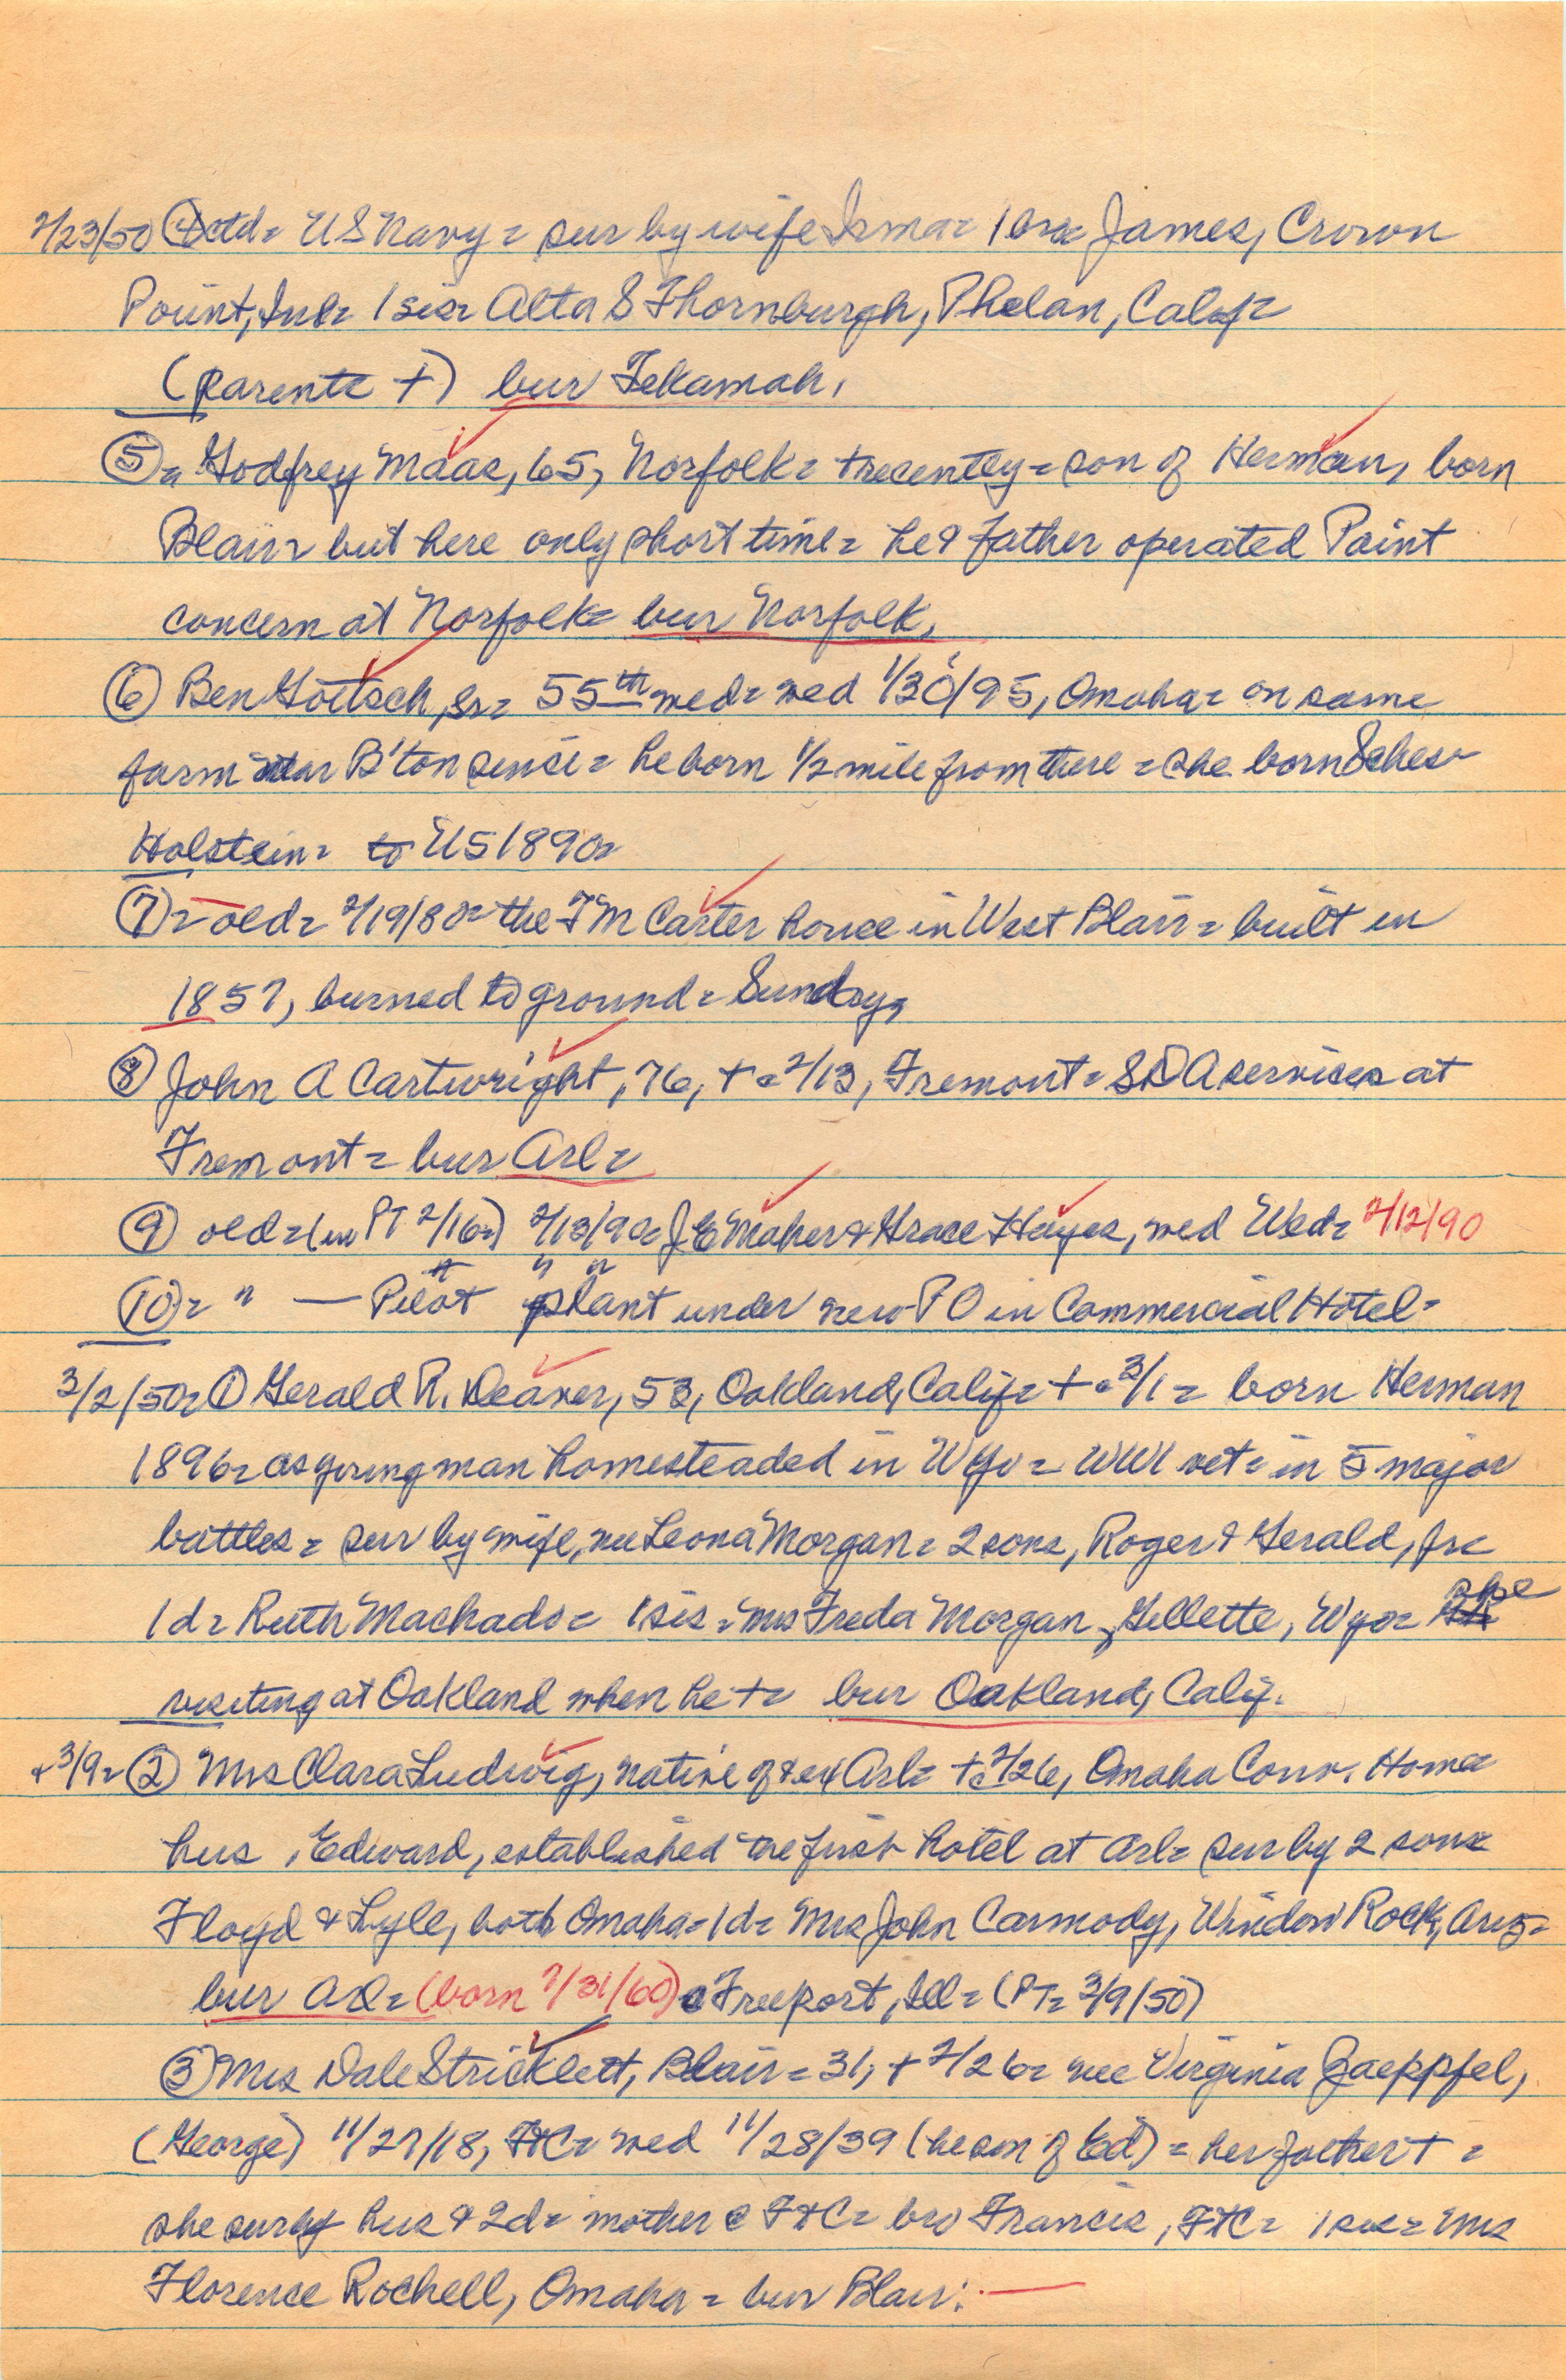 2/23/50 (4) ctd = US Navy = sur by wife Irma = 1 bro = James, Crown
Point, Ind = 1 sis = Alta S Thornburgh, Phelan, Calif =
(parents +) bur Tekamah.
(5) = Godfrey Maas, 65, Norfolk = + recently = son of Herman, born
Blair = but here only short time = he & father operated Paint
concern at Norfolk = bur Norfolk.
(6) Ben Goetsch, Sr = 55th wed = wed 1/30/95, Omaha = on same
farm near B'ton since = he born 1/2 mile from there = she born Schles
Holstein = to US 1890 =
(7) = old = 2/19/80 = the TM Carter house in West Blair = built in
1857, burned to ground = Sunday,
(8) John A Cartwright, 76, + @ 2/13, Fremont = SDA services at
Fremont = bur Arl =
(9) old = (in PT 2/16 =) 2/13/90 = J E Maher & Grace Hayes, wed Wed = 2/12/90
(10) = " — Pilot " plant " " under new PO in Commercial Hotel =
3/2/50 = (1) Gerald R. Deaver, 53, Oakland, Calif = + @ 3/1 = born Herman
1896 = as young man homesteaded in Wyo = WWI vet = in 5 major
battles = sur by wife, nee Leona Morgan = 2 sons, Roger & Gerald, Jr =
1 d = Ruth Machado = 1 sis = Mrs Freda Morgan, Gillette, Wyo = she
visiting at Oakland when he + = bur Oakland, Calif.
+ 3/9 = (2) Mrs Clara Ludwig, native of & ex Arl = + @ 2/26, Omaha Conv. Home =
hus, Edward, established the first hotel at Arl = sur by 2 sons
Floyd & Lyle, both Omaha = 1 d = Mrs John Carmody, Window Rock, Ariz =
bur Arl = (born 7/31/60) @ Freeport, Ill = (PT = 3/9/50)
(3) Mrs Dale Stricklett, Blair = 31, + 2/26 = nee Virginia Gaeppfel,
(George) 11/27/18, FtC = wed 11/28/39 (he son of Ed) = her father + =
she sur by hus & 2 d = mother @ FtC = bro Francis, FtC = 1 sis = Mrs
Florence Rochell, Omaha = bur Blair. —